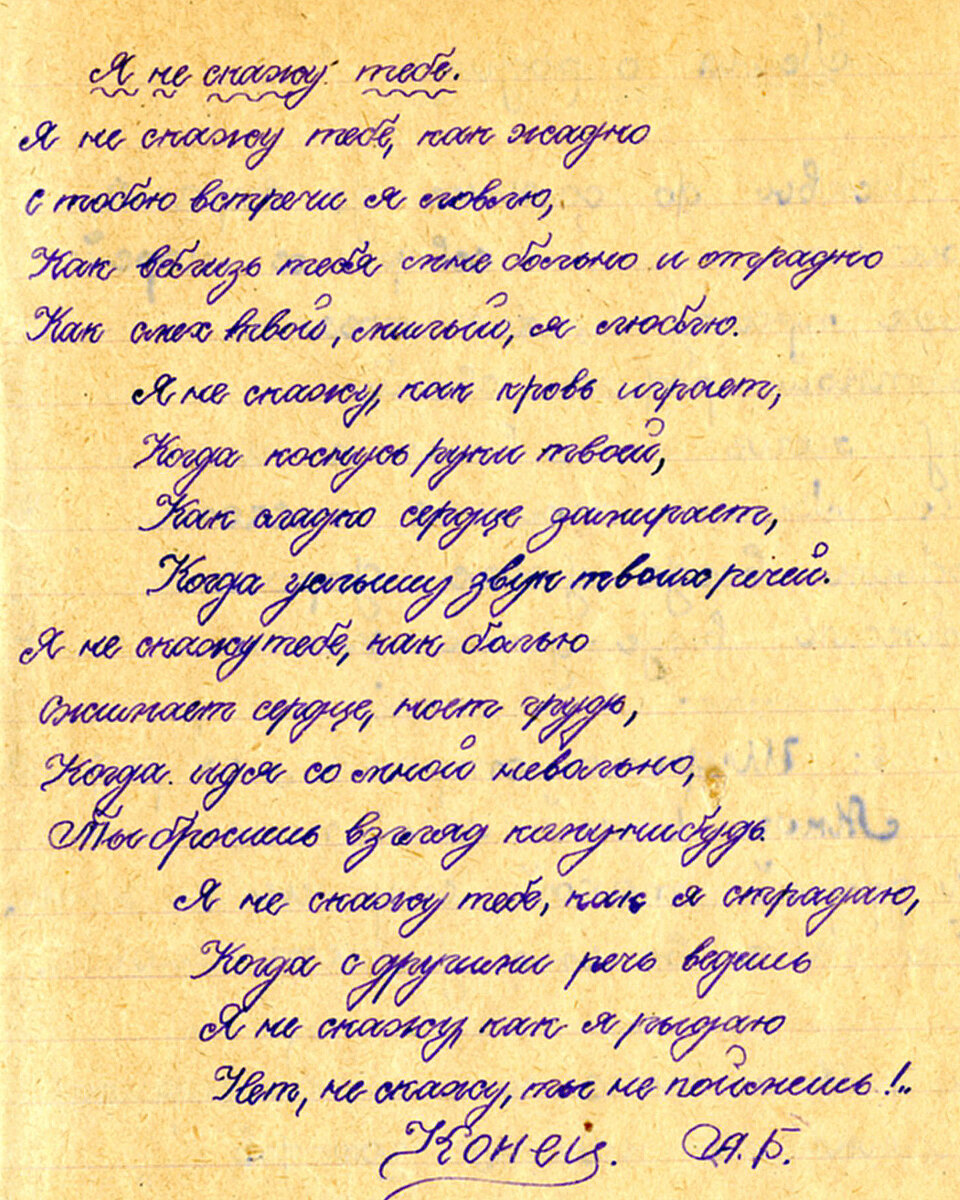 Я не скажу тебе.
Я не скажу тебе, как жадно
с тобою встречи я ловлю,
Как вблизь тебя мне больно и отрадно
Как смех твой, милый, я люблю.
Я не скажу, как кровь играет,
Когда коснусь руки твоей,
Как сладко сердце замирает,
Когда услышу звук твоих речей.
Я не скажу тебе, как болью
сжимает сердце, ноет грудь,
Когда идя со мной невольно,
Ты бросишь взгляд кому-нибудь.
Я не скажу тебе, как я страдаю,
Когда с другими речь ведешь
Я не скажу, как я рыдаю
Нет, не скажу, ты не поймешь!..
Конец. А.Б.